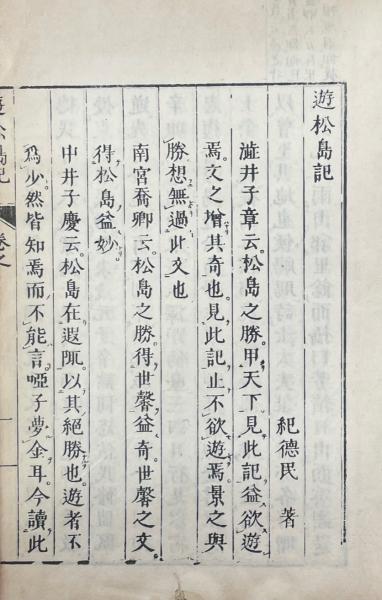 遊松島記
紀德民 著
澁井子章云。松島之勝。甲天下。見此記益欲遊
焉。文之增其奇也。見此記止不欲遊焉。景之與
勝想無過此文也
南宮喬卿云。松島之勝。得世馨益奇。世馨之文。
得松島益妙
中井子慶云。松島在遐陬。以其絕勝也。遊者不
爲少。然皆知焉而不能言。啞子夢金耳。今讀此
遊松島記
卷之